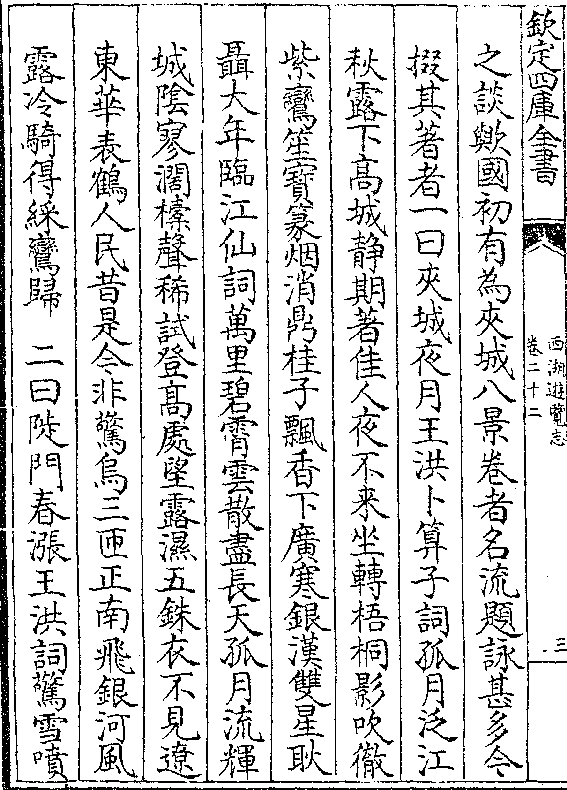 欽定四庫全書
西湖遊覽志
卷二十二
三
之談歟國初有為夾城八景卷者名流題詠甚多今
掇其著者一曰夾城夜月王洪卜算子詞孤月泛江
秋露下高城静期著佳人夜不来坐轉梧桐影吹徹
紫鸞笙寳篆烟消鼎桂子飄香下廣寒銀漢雙星耿
聶大年臨江仙詞萬里碧霄雲散盡長天孤月流輝
城陰寥濶櫜聲稀試登髙處望露濕五銖衣不見遼
東華表鶴人民昔是令非驚烏三匝正南飛銀河風
露冷騎得綵鸞歸　二曰陡門春漲王洪詞驚雪噴